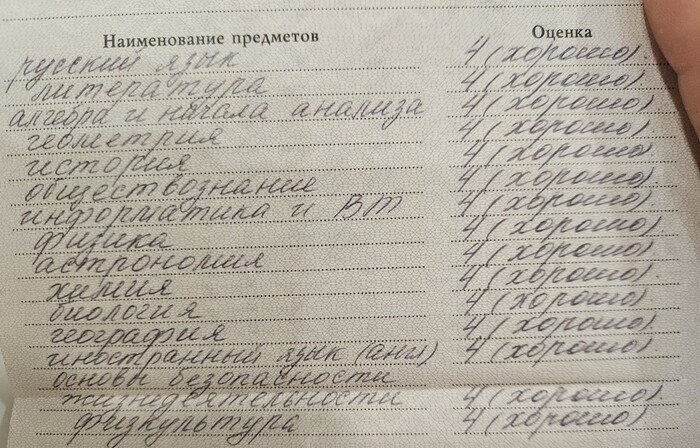 Наименование предметов Оценка
русский язык 4 (хорошо)
литература 4 (хорошо)
алгебра и начала анализа 4 (хорошо)
геометрия 4 (хорошо)
история 4 (хорошо)
обществознание 4 (хорошо)
информатика и ВТ 4 (хорошо)
физика 4 (хорошо)
астрономия 4 (хорошо)
химия 4 (хорошо)
биология 4 (хорошо)
география 4 (хорошо)
иностранный язык (англ) 4 (хорошо)
основы безопасности
жизнедеятельности 4 (хорошо)
физкультура 4 (хорошо)